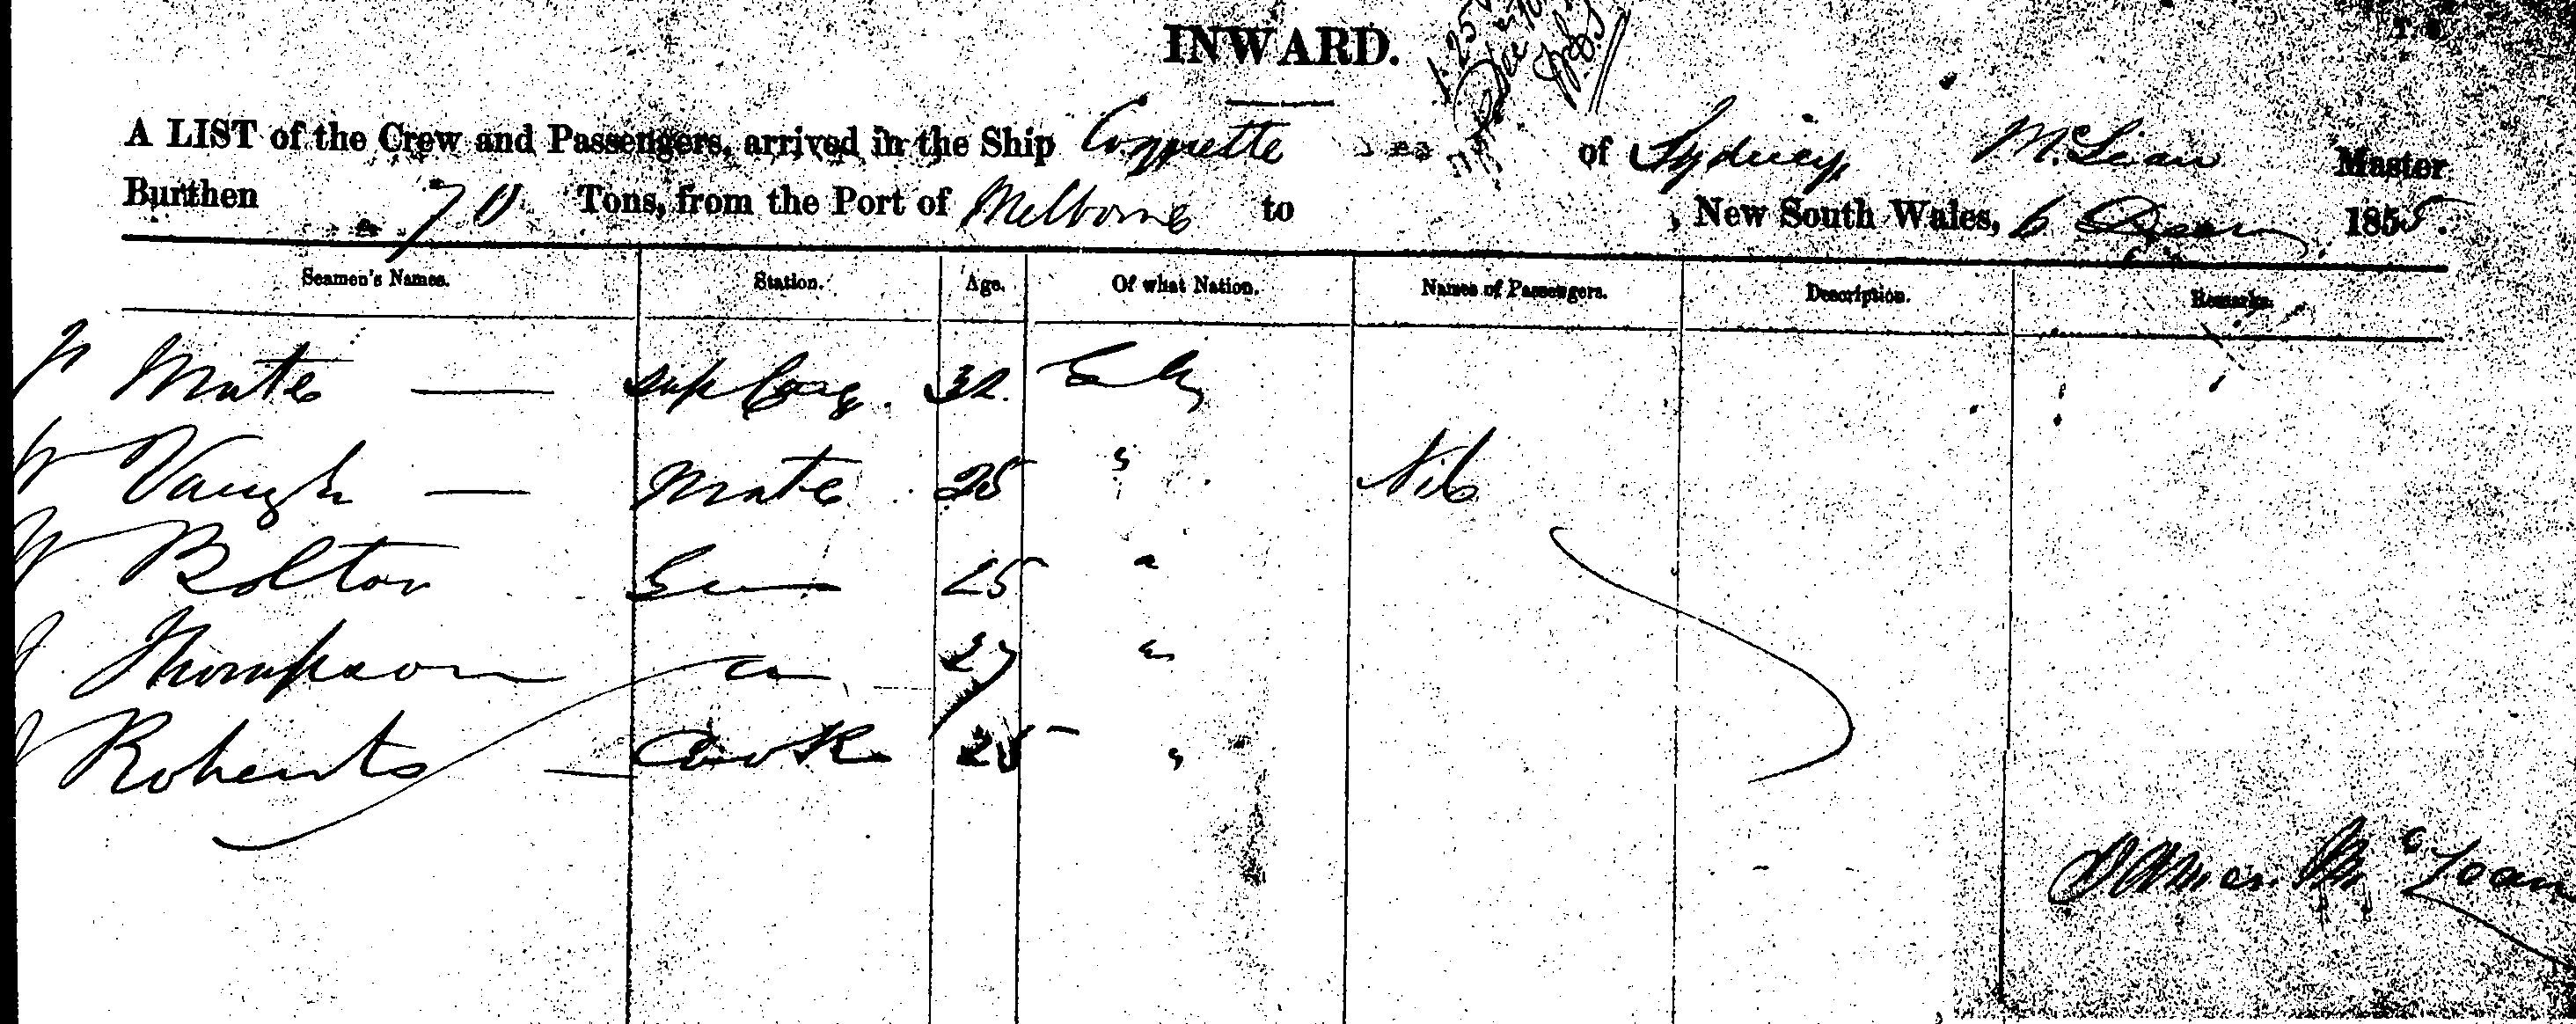 INWARD.
A LIST of the Crew and Passengers, arrived in the Ship Coquette of Sydney, McLean Master
Burthen 70 Tons, from the Port of Melborne to , New South Wales, 6 1855.
Seamen's Names. Station. Age. Of what Nation. Names of Passengers. Description. Remarks.
Mate — 32.
W Vaugh — Mate 25 " Nil
W Bolton 25 "
J Thompson 27 "
J Roberts — Cook 25 "
McLean